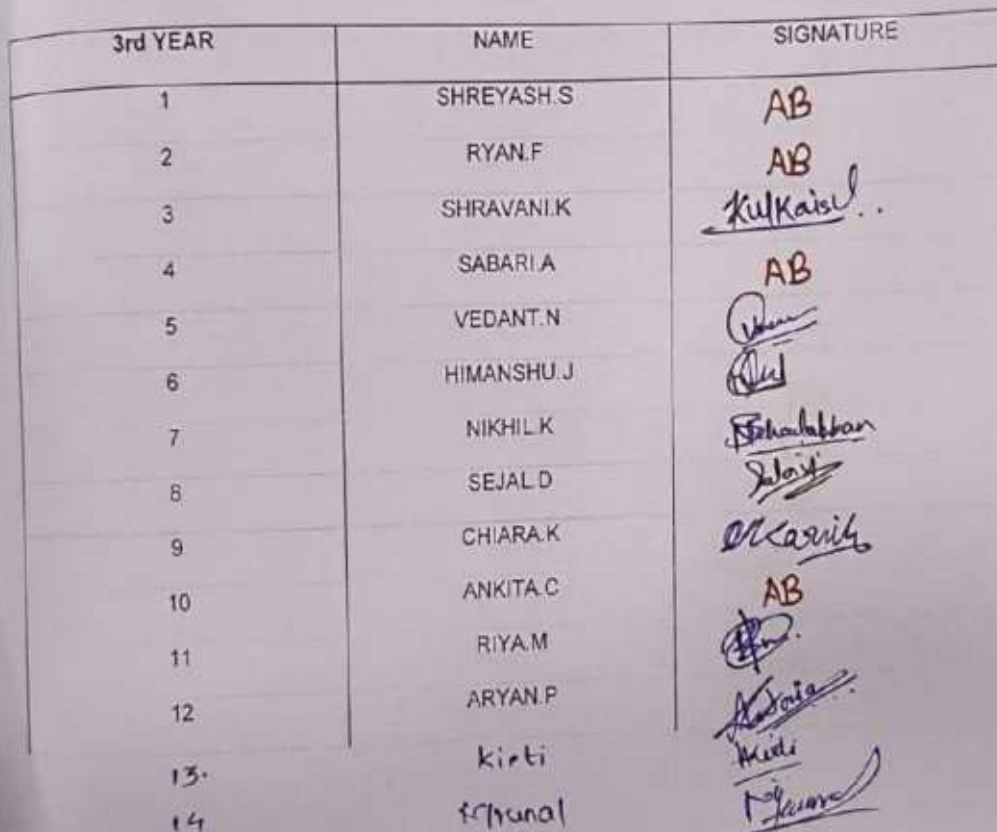 3rd YEAR NAME SIGNATURE
1 SHREYASH.S AB
2 RYAN.F AB
3 SHRAVANI.K
4 SABARI.A AB
5 VEDANT.N
6 HIMANSHU.J
7 NIKHIL.K
8 SEJAL.D
9 CHIARA.K
10 ANKITA.C AB
11 RIYA.M
12 ARYAN.P
13. Kirti
14 Krunal